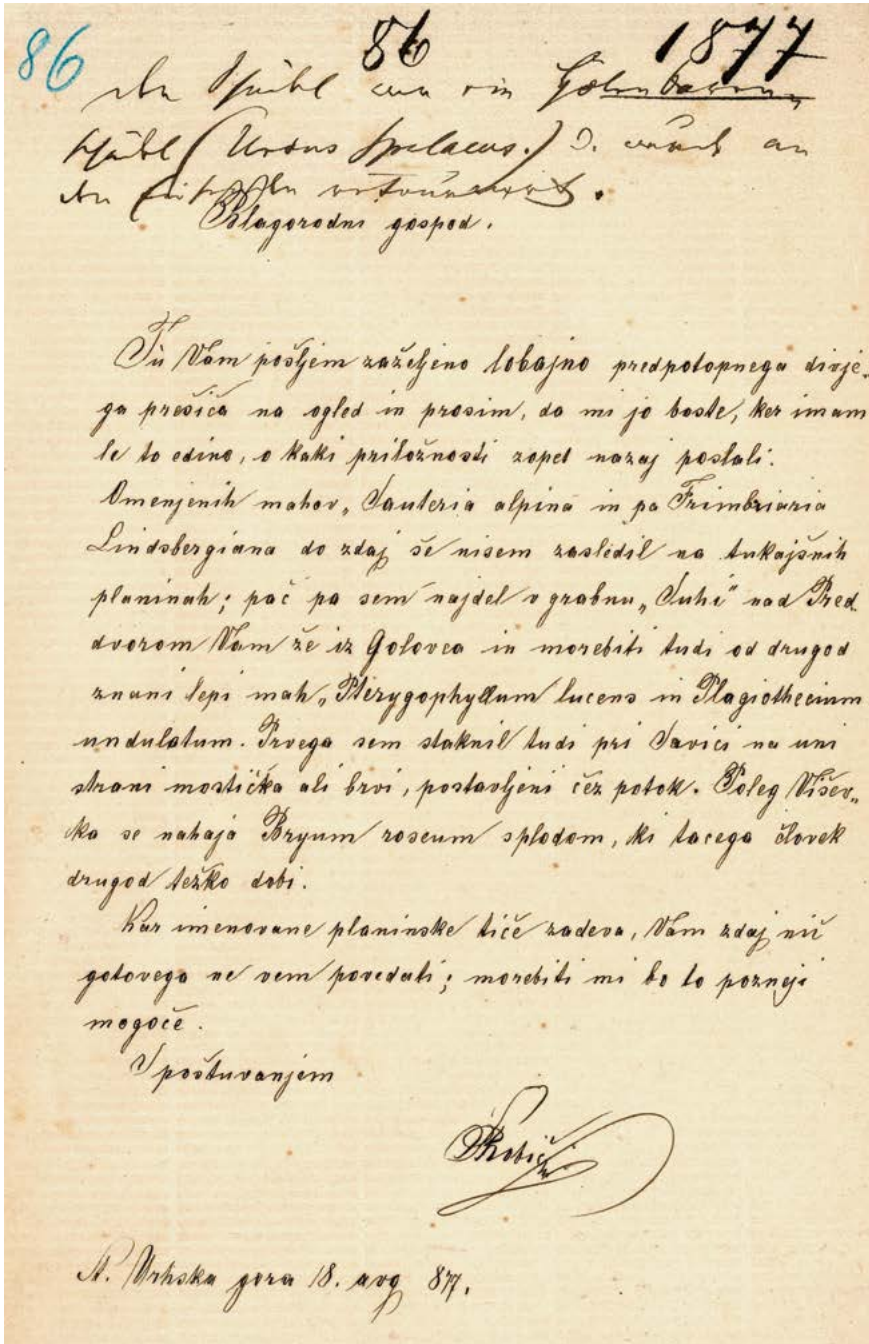 86 86 1877
der Schädel war ein Höhlenbären
schädel (Ursus spelaeus.) u. wurde an
den retournirt.
Blagorodni gospod.
Tù Vam pošljem zaželjeno lobajno predpotopnega divje-
ga prešiča na ogled in prosim, da mi jo boste, ker imam
le to edino, o kaki priložnosti zopet nazaj poslali.
Omenjenih mahov „Sauteria alpina in pa Frimbriaria
Lindsbergiana do zdaj še nisem zasledil na tukajšnih
planinah; pač pa sem najdel v grabnu „Suhi" nad Pred
dvorom Vam že iz Golovca in morebiti tudi od drugod
znani lepi mah „Pterygophyllum lucens in Plagiothecium
undulatum. Prvega sem staknil tudi pri Savici na uni
strani mostička ali brvi, postavljeni čez potok. Poleg Višev„
ka se nahaja Bryum roseum splodom, ki tacega človek
drugod težko dobi.
Kar imenovane planinske tiče zadeva, Vam zdaj nič
gotovega ne vem povedati; morebiti mi bo to pozneji
mogoče.
Spoštuvanjem
Robič
Š. Urhska gora 18. avg 877.